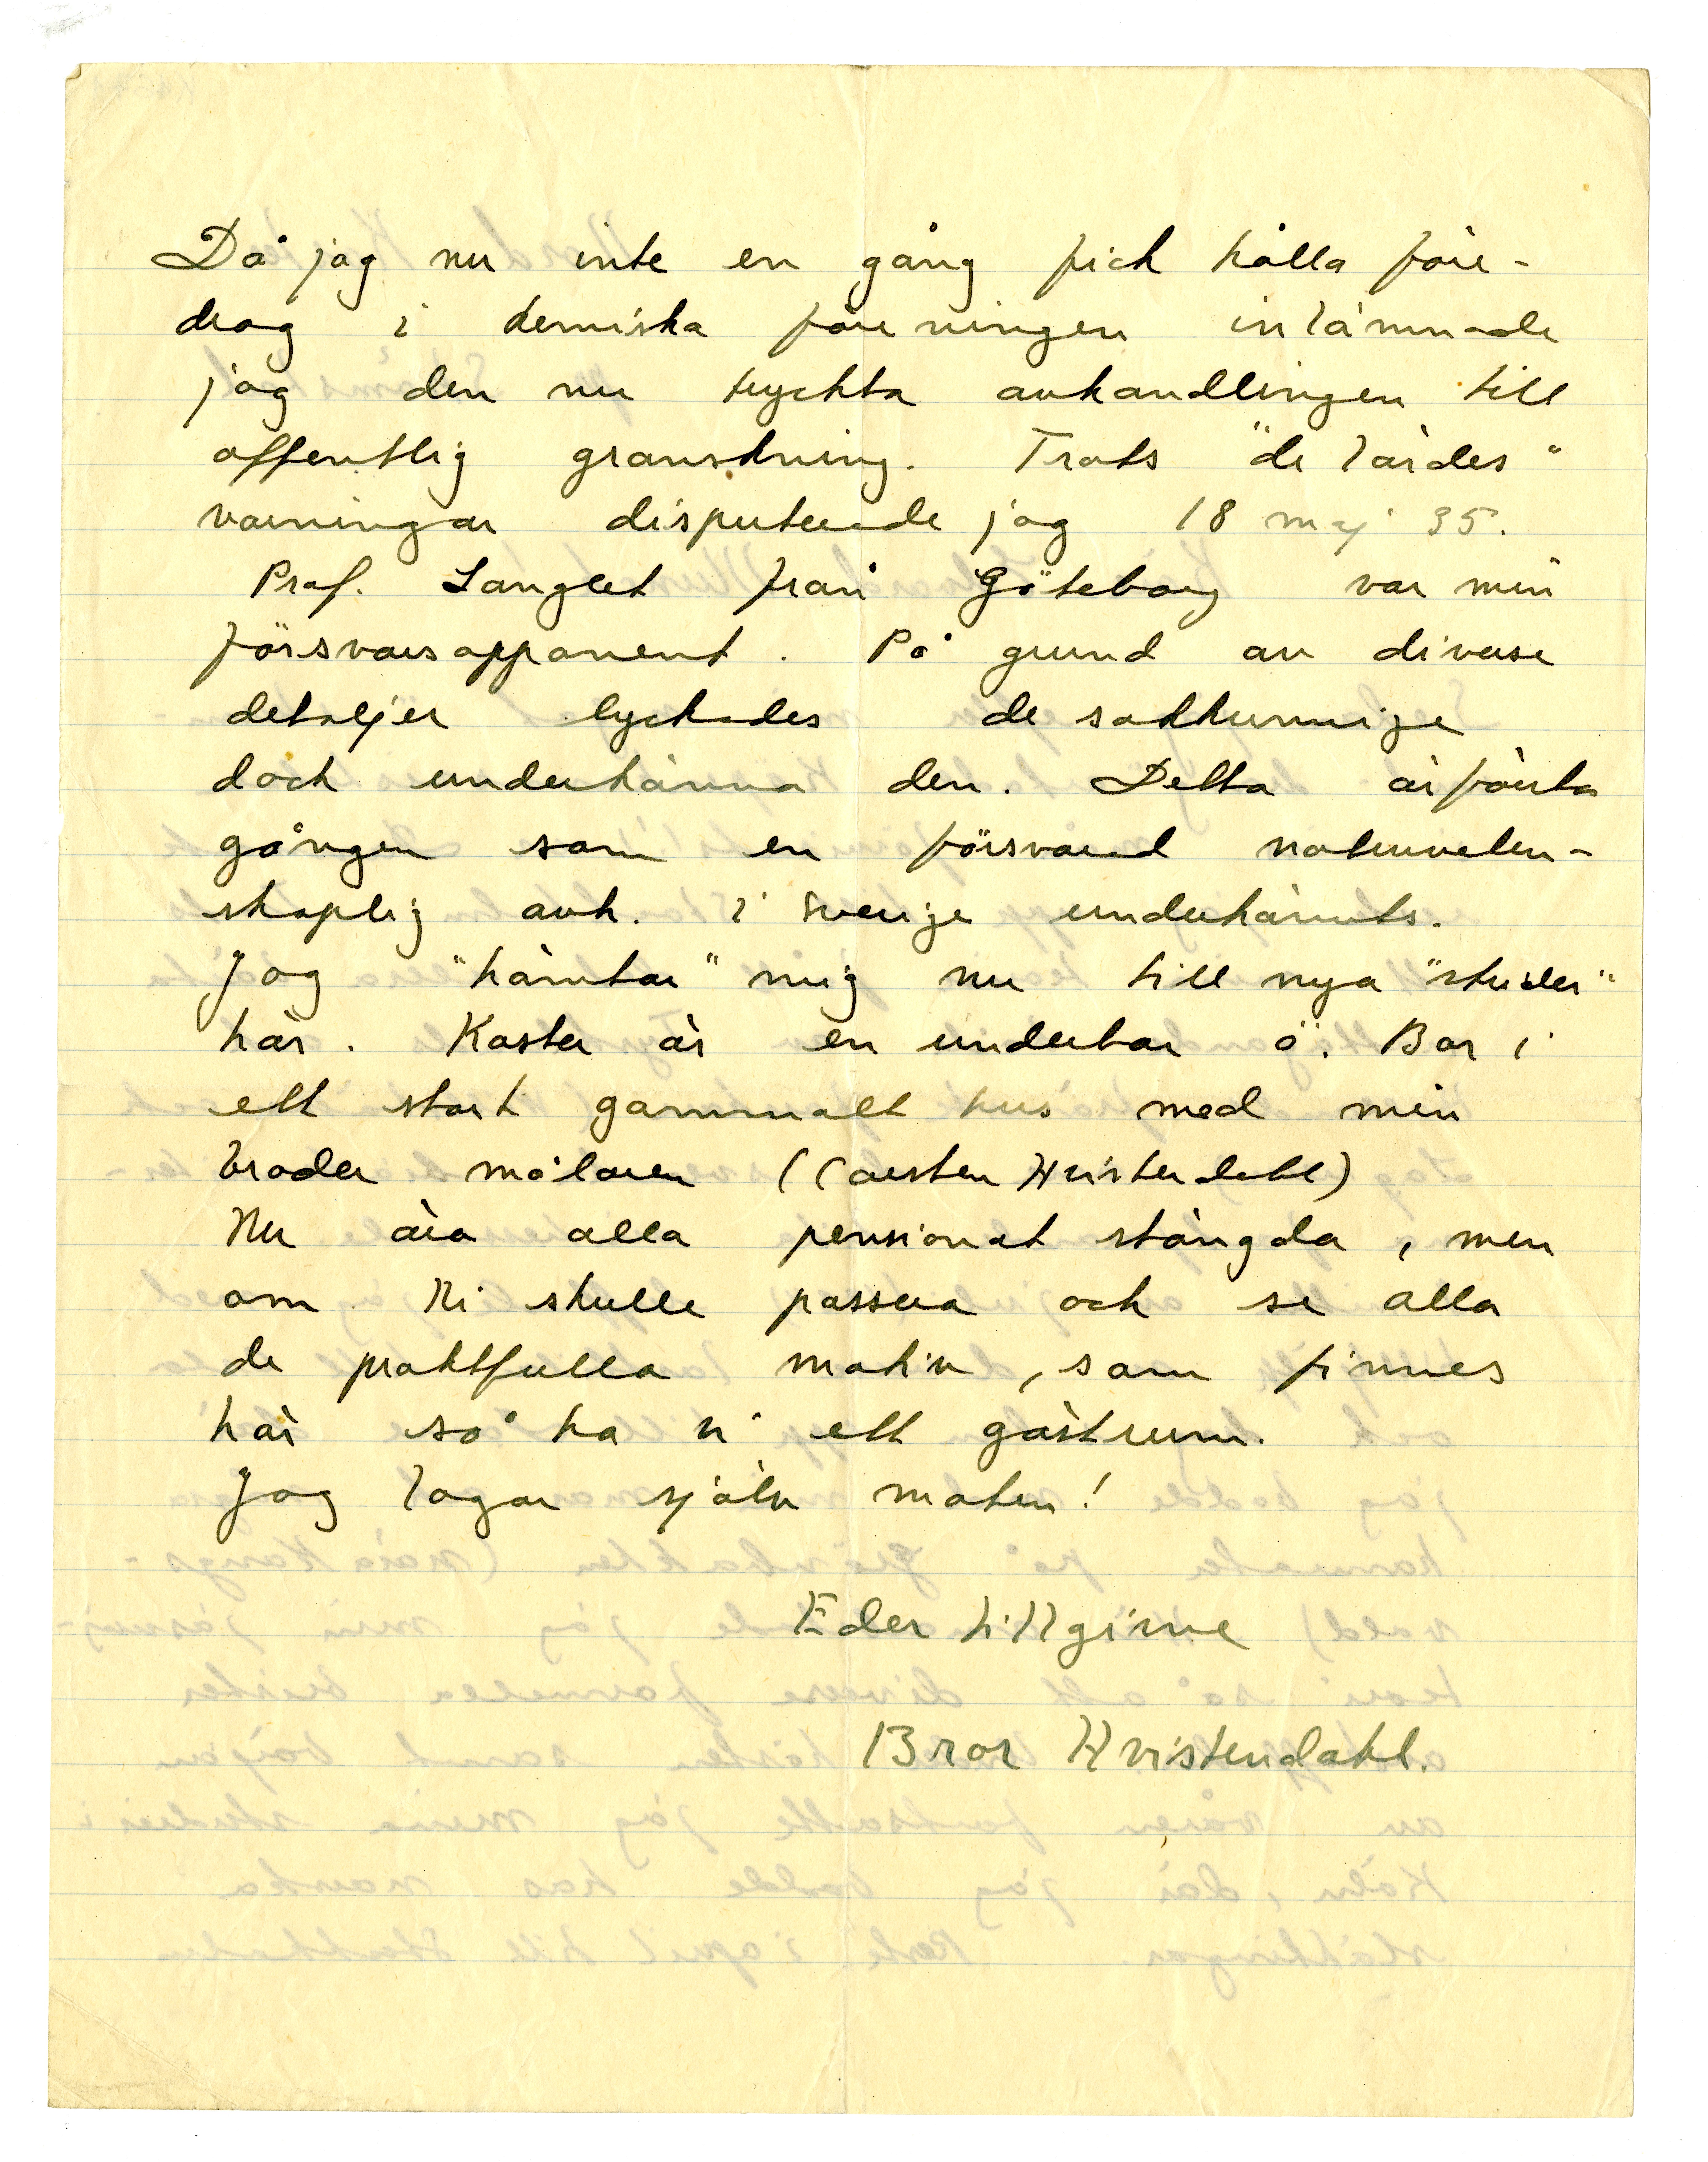 Då jag nu inte en gång fick hålla före-
drag i kemiska föreningen inlämnade
jag den nu tryckta avhandlingen till
offentlig granskning. Trots "de lärdes"
varningar disputerade jag 18 maj 35.
Prof. Langlet från Göteborg var min
försvarsopponent. På grund av diverse
detaljer lyckades de sakkunnige
dock underkänna den. Detta är första
gången som en försvarad naturveten-
skaplig avh. i Sverige underkännts.
Jag "hämtar" mig nu till nya "studier"
här. Koster är en underbar ö. Bor i
ett stort gammalt hus med min
broder målaren (Carsten Hvistendahl)
Nu äro alla pensionat stängda, men
om Ni skulle passera och se alla
de praktfulla motiv, som finnes
här så ha vi ett gästrum.
Jag lagar själv maten!
Eder tillgivne
Bror Hvistendahl.